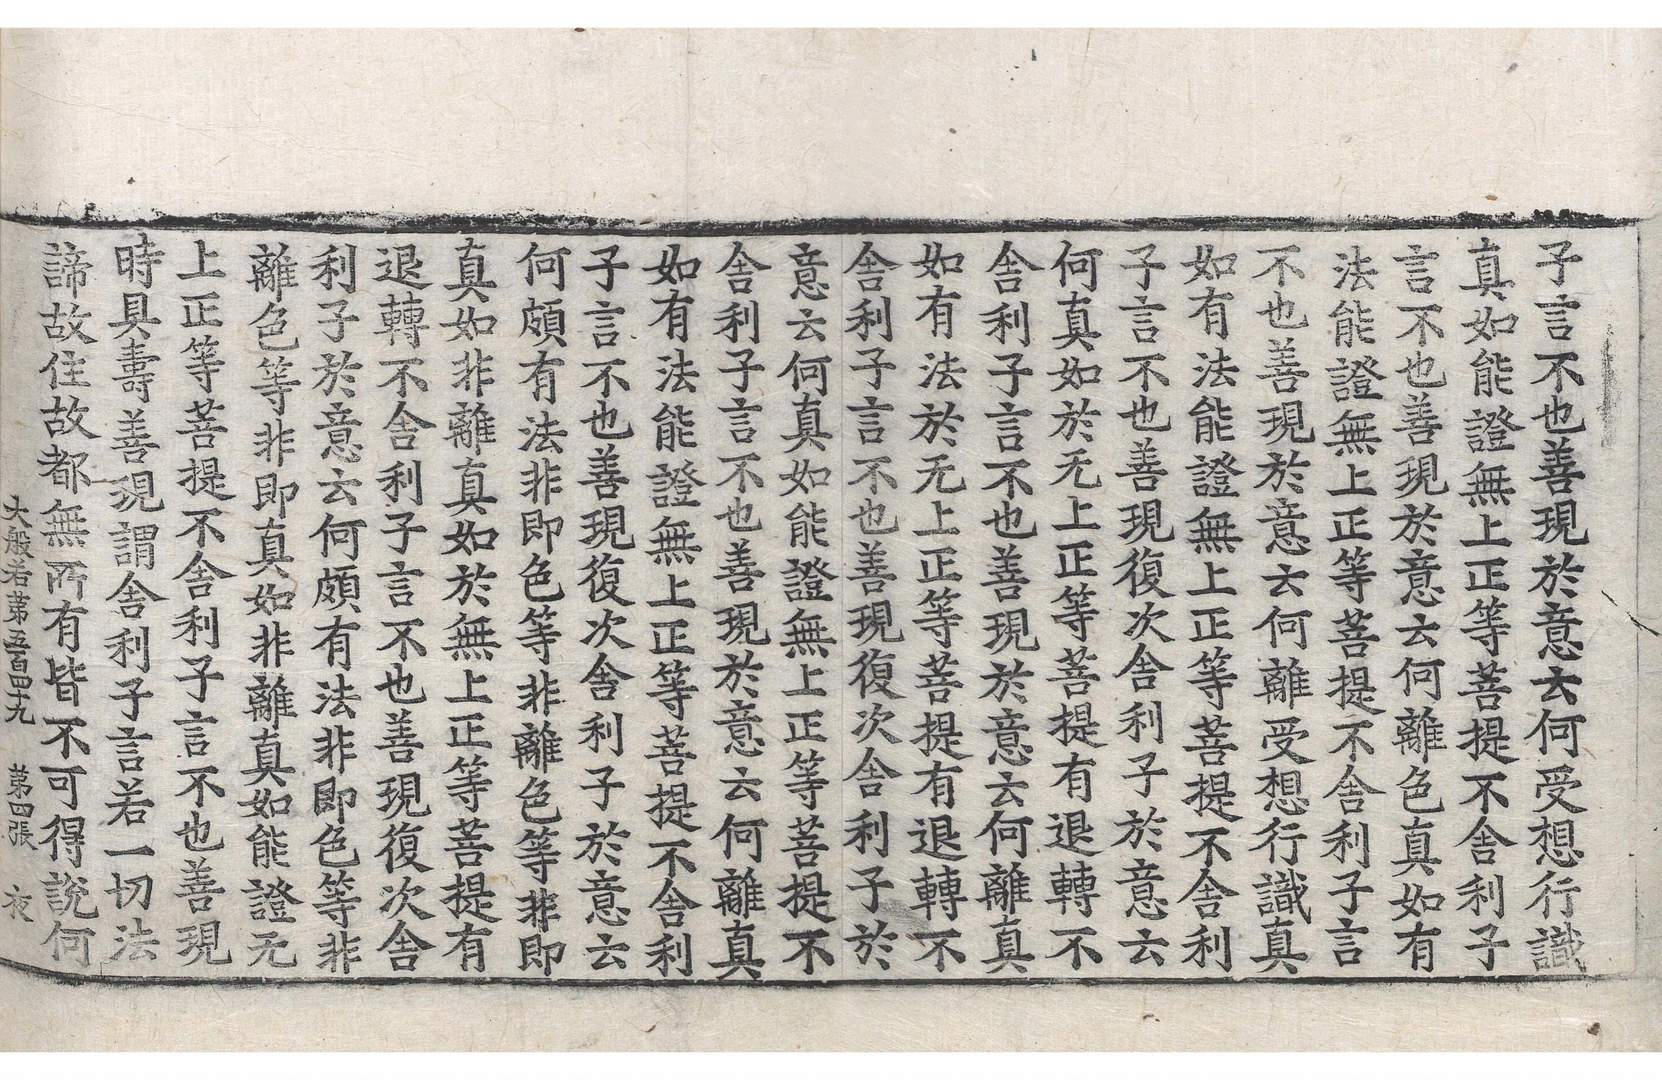 子言不也善現於意云何受想行識
真如能證無上正等菩提不舍利子
言不也善現於意云何離色真如有
法能證無上正等菩提不舍利子言
不也善現於意云何離受想行識真
如有法能證無上正等菩提不舍利
子言不也善現復次舍利子於意云
何真如於无上正等菩提有退轉不
舍利子言不也善現於意云何離真
如有法於无上正等菩提有退轉不
舍利子言不也善現復次舍利子於
意云何真如能證無上正等菩提不
舍利子言不也善現於意云何離真
如有法能證無上正等菩提不舍利
子言不也善現復次舍利子於意云
何頗有法非即色等非離色等非即
真如非離真如於無上正等菩提有
退轉不舍利子言不也善現復次舍
利子於意云何頗有法非即色等非
離色等非即真如非離真如能證无
上正等菩提不舍利子言不也善現
時具壽善現謂舍利子言若一切法
諦故住故都無所有皆不可得說何
大般若第五百四十九 第四張 夜